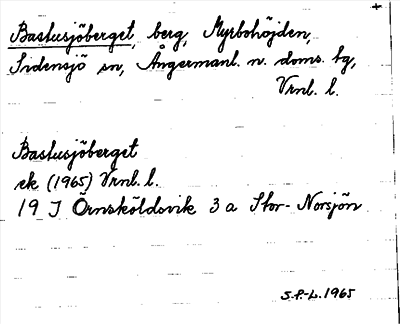 Bastusjöberget, berg, Myrbohöjden,
Sidensjö sn, Ångermanl. n. doms. tg,
Vrnl. l.
Bastusjöberget
ek (1965) Vrnl. l.
19 J Örnsköldsvik 3 a Stor-Norsjön
S.P.-L. 1965